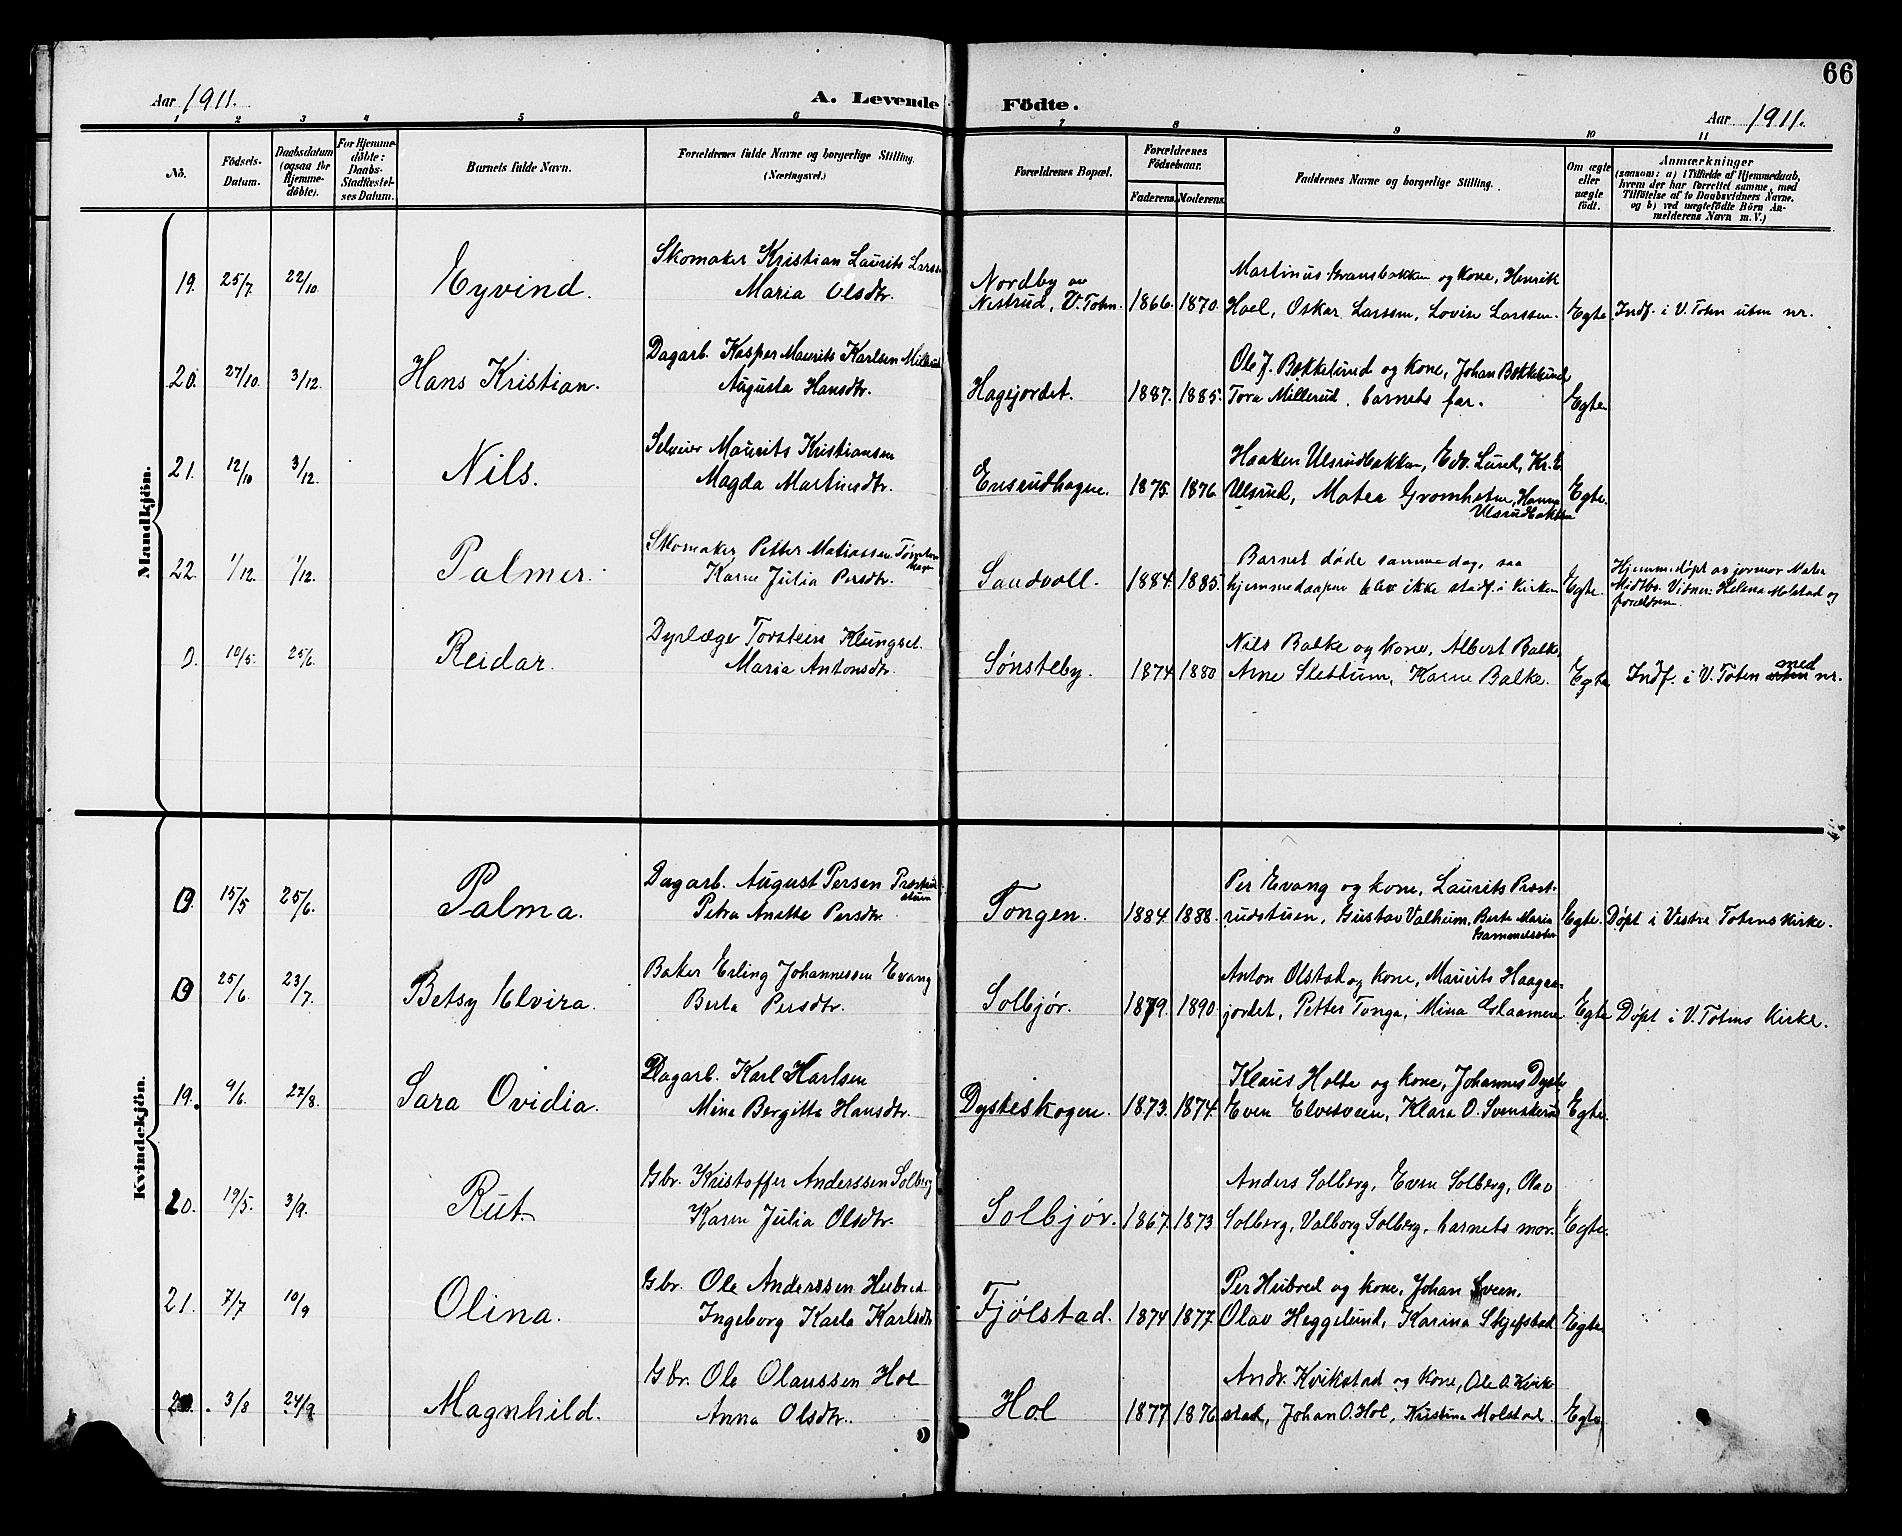 66
Aar 1911.
A. Levende Födte.
Aar 1911.
1 2 3 4 5 6 7 8 9 10 11
No.
Födsels-Datum.
Daabsdatum (ogsaa for Hjemmedöbte).
For Hjemmedöbte: Daabs-Stadfæstelses Datum.
Barnets fulde Navn.
Forældrenes fulde Navne og borgerlige Stilling.
(Næringsvei.)
Forældrenes Bopæl.
Forældrenes Födselsaar.
Faderens. Moderens.
Faddernes Navne og borgerlige Stilling.
Om ægte eller uægte födt.
Anmærkninger
(saasom: a) i Tilfælde af Hjemmedaab,
hvem der har forrettet samme, med
Tilföielse af to Daabsvidners Navne,
og b) ved uægtefödte Börn Anmelderens Navn m. V.)
Mandkjön.
19. 25/7. 22/10. Eyvind. Skomaker Kristian Laurits Larssen
Maria Olsdtr. Nordby av Nestrud, V. Toten. 1866. 1870. Martinus Gransbakken og kone, Henrik
Hoel, Oskar Larssen, Lovise Larssen. Egte. Indf. i V. Toten uten nr.
20. 27/10. 3/12. Hans Kristian. Dagarb. Kasper Maurits Karlsen Millerud
Augusta Hansdtr. Hagejordet. 1887. 1885. Ole J. Bøkkelund og kone, Johan Bøkkelund
Tora Millerud, barnets far. Egte.
21. 12/10 3/12. Nils. Selveier Maurits Kristiansen
Magda Martinsdtr. Ensrudhagen. 1875. 1876. Haaken Ulsrudbakken, Edv. Lund, Kr. E
Ulsrud, Matea Gromheten, Hanna
Ulsrudbakken Egte.
22. 1/12. 1/12. Palmer. Skomaker Petter Matiassen
Karen Julia Persdtr. Sandvoll. 1884. 1885. Barnet døde samme dag, saa
hjemmedaapen blev ikke stadf. i kirken Egte. Hjemmedøpt av jormor Mater
Midtbø. Vidner: Helena Molstad og
forældren.
0. 10/5. 25/6. Reidar. Dyrlæge Torstein Klungset.
Maria Antonsdtr. Sønsteby. 1874 1880 Nils Balke og kone, Albert Balke,
Arne Slettum, Karen Balke. Egte Indf. i V. Toten uten med nr.
Kvindekjön.
0. 15/5 25/6. Palma. Dagarb. August Persen Præstrudstuen
Petra Anette Persdtr. Tongen. 1884. 1888. Per Evang og kone, Laurits Præst-
rudstuen, Gustav Valheim, Berte Maria
Gammelsæter Egte. Døpt i Vestre Totens kirke.
0 25/6. 23/7. Betsy Elvira. Baker Erling Johannessen Evang
Berta Persdtr. Solbjør. 1879. 1890. Anton Olstad og kone, Maurits Haagaa-
jordet, Petter Tonga, Mina Glaameren Egte Døpt i V. Totens kirke.
19. 9/6. 27/8. Sara Ovidia. Dagarb. Karl Karlsen
Mina Bergitta Hansdtr. Dysteskogen. 1873. 1874. Klaus Holte og kone, Johannes Dyste
Even Elvesveen, Klara O. Svenskerud Egte.
20. 19/5. 3/9. Rut. Gbr. Kristoffer Anderssen Solberg
Karen Julia Olsdtr. Solbjør. 1867. 1873 Anders Solberg, Even Solberg, Olav
Solberg, Valborg Solberg, barnets mor. Egte.
21. 7/7 10/9 Olina. Gbr. Ole Anderssen Hubred
Ingeborg Karla Karlsdtr Fjølstad. 1874 1877. Per Hubred og kone, Johan Sveen,
Olav Heggelund, Karina Skjefstad Egte
3/8 24/9 Magnhild. Gbr. Ole Olaussen Hol
Anna Olsdtr. Hol 1877 1876 Andr. Kvikstad og kone, Ole A. Kvik-
stad, Johan O. Hol, Kristina Molstad. Egte